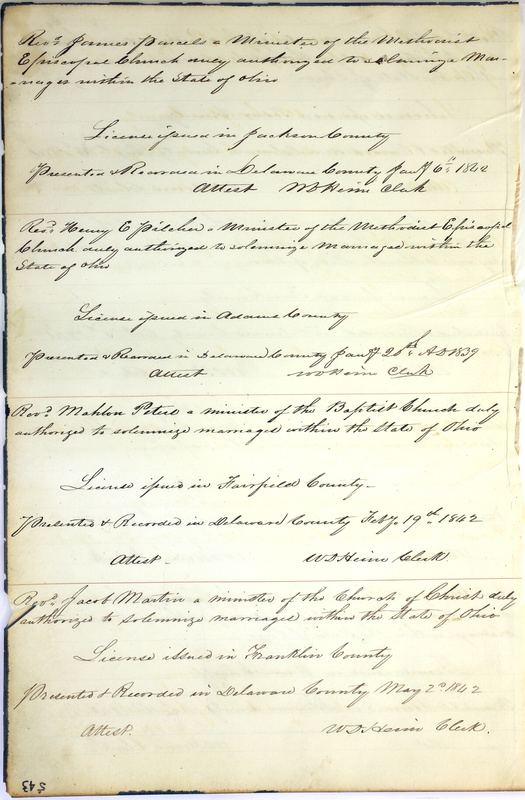 Revd. James Parcels a Minister of the Methodist
Episcopal Church duly authorized to solminize Mar-
riages within the State of Ohio
License issued in Jackson County
Presented & Recorded in Delaware County Jany 6th 1842
Attest W D Heim Clerk
Revd. Henry E Pilcher a Minister of the Methodist Episcopal
Church duly authorized to solemnize Marriages within the
State of Ohio
License issued in Adams County
Presented & Recorded in Delaware County Jany 20th A D 1839
Attest W D Heim Clerk
Revd. Mahlon Peters a minister of the Baptist Church duly
authorized to solemnize marriages within the State of Ohio
License issued in Fairfield County -
Presented & Recorded in Delaware County Feby. 19th 1842
Attest - W D Heim Clerk.
Revd. Jacob Martin a minister of the Church of Christ duly
authorized to solemnize marriages within the State of Ohio
License issued in Franklin County
Presented & Recorded in Delaware County May 2d 1842
Attest. W D Heim Clerk.
543